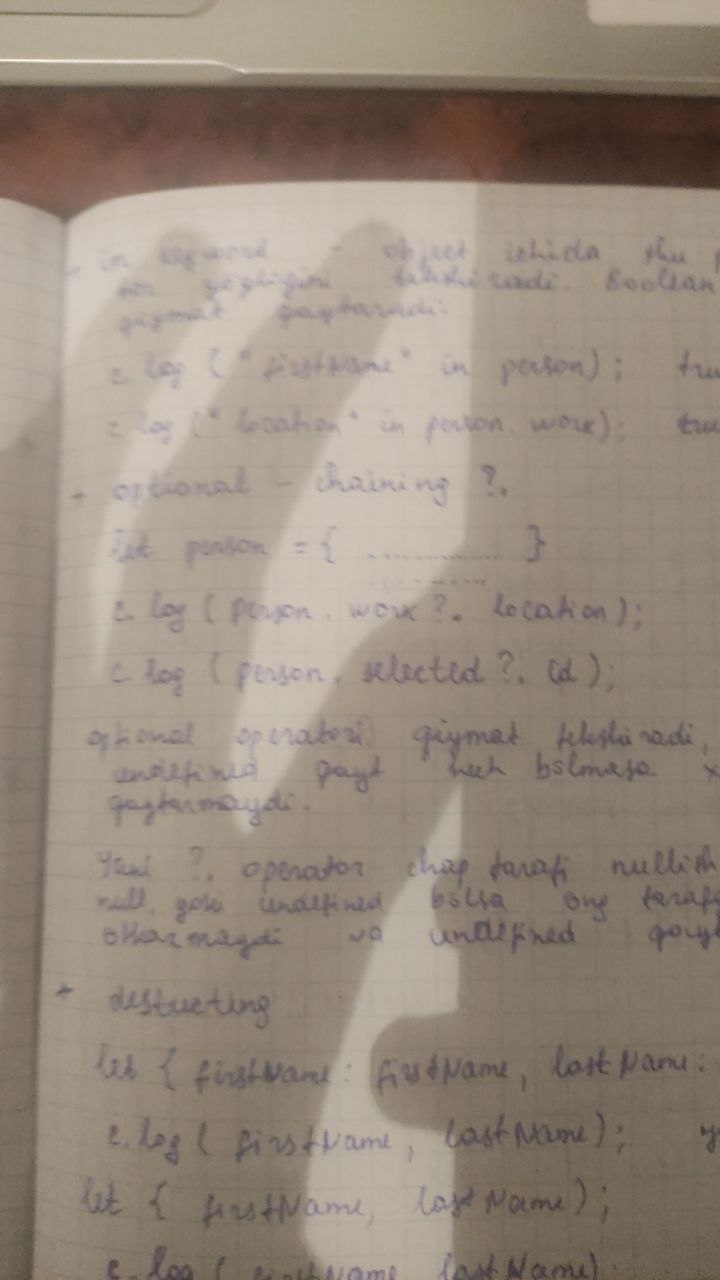 in keyword - object ichida shu
bor yo'qligini tekshiradi. Boolean
qiymat qaytaradi.
c. log ("firstName" in person); tru
c log ("location" in person. work); tru
+ optional - chaining ?.
let person = { ............ }
c. log ( person. work ?. location);
c log ( person. selected ?. id );
optional operatori qiymat tekshiradi,
undefined qayt hech bo'lmasa x
qaytarmaydi.
Yani ?. operator chap tarafi nullish
null yoki undefined bo'lsa ong tarafi
otkazmaydi va undefined qayt
+ destucting
let { firstName: firstName, lastName:
c. log ( firstName, lastName);
let { firstName, lastName);
c. log ( firstName lastName)